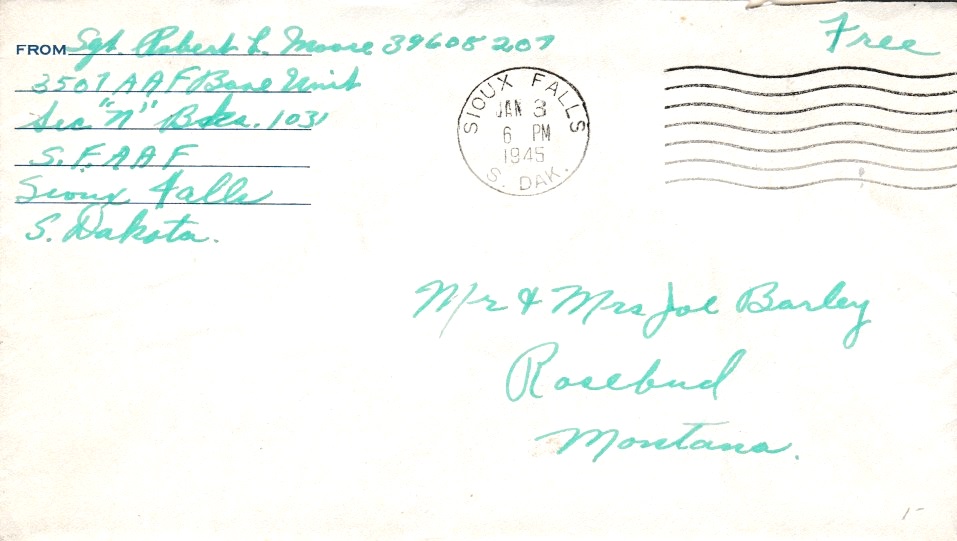 FROM Sgt. Robert L. Moore 39608207
3507 AAF Base Unit
Sec "N" Bks. 1031
S.F.A.A.F
Sioux Falls
S. Dakota.
Free
SIOUX FALLS
JAN 3
6 PM
1945
S. DAK.
Mr & Mrs Joe Barley
Rosebud
Montana.